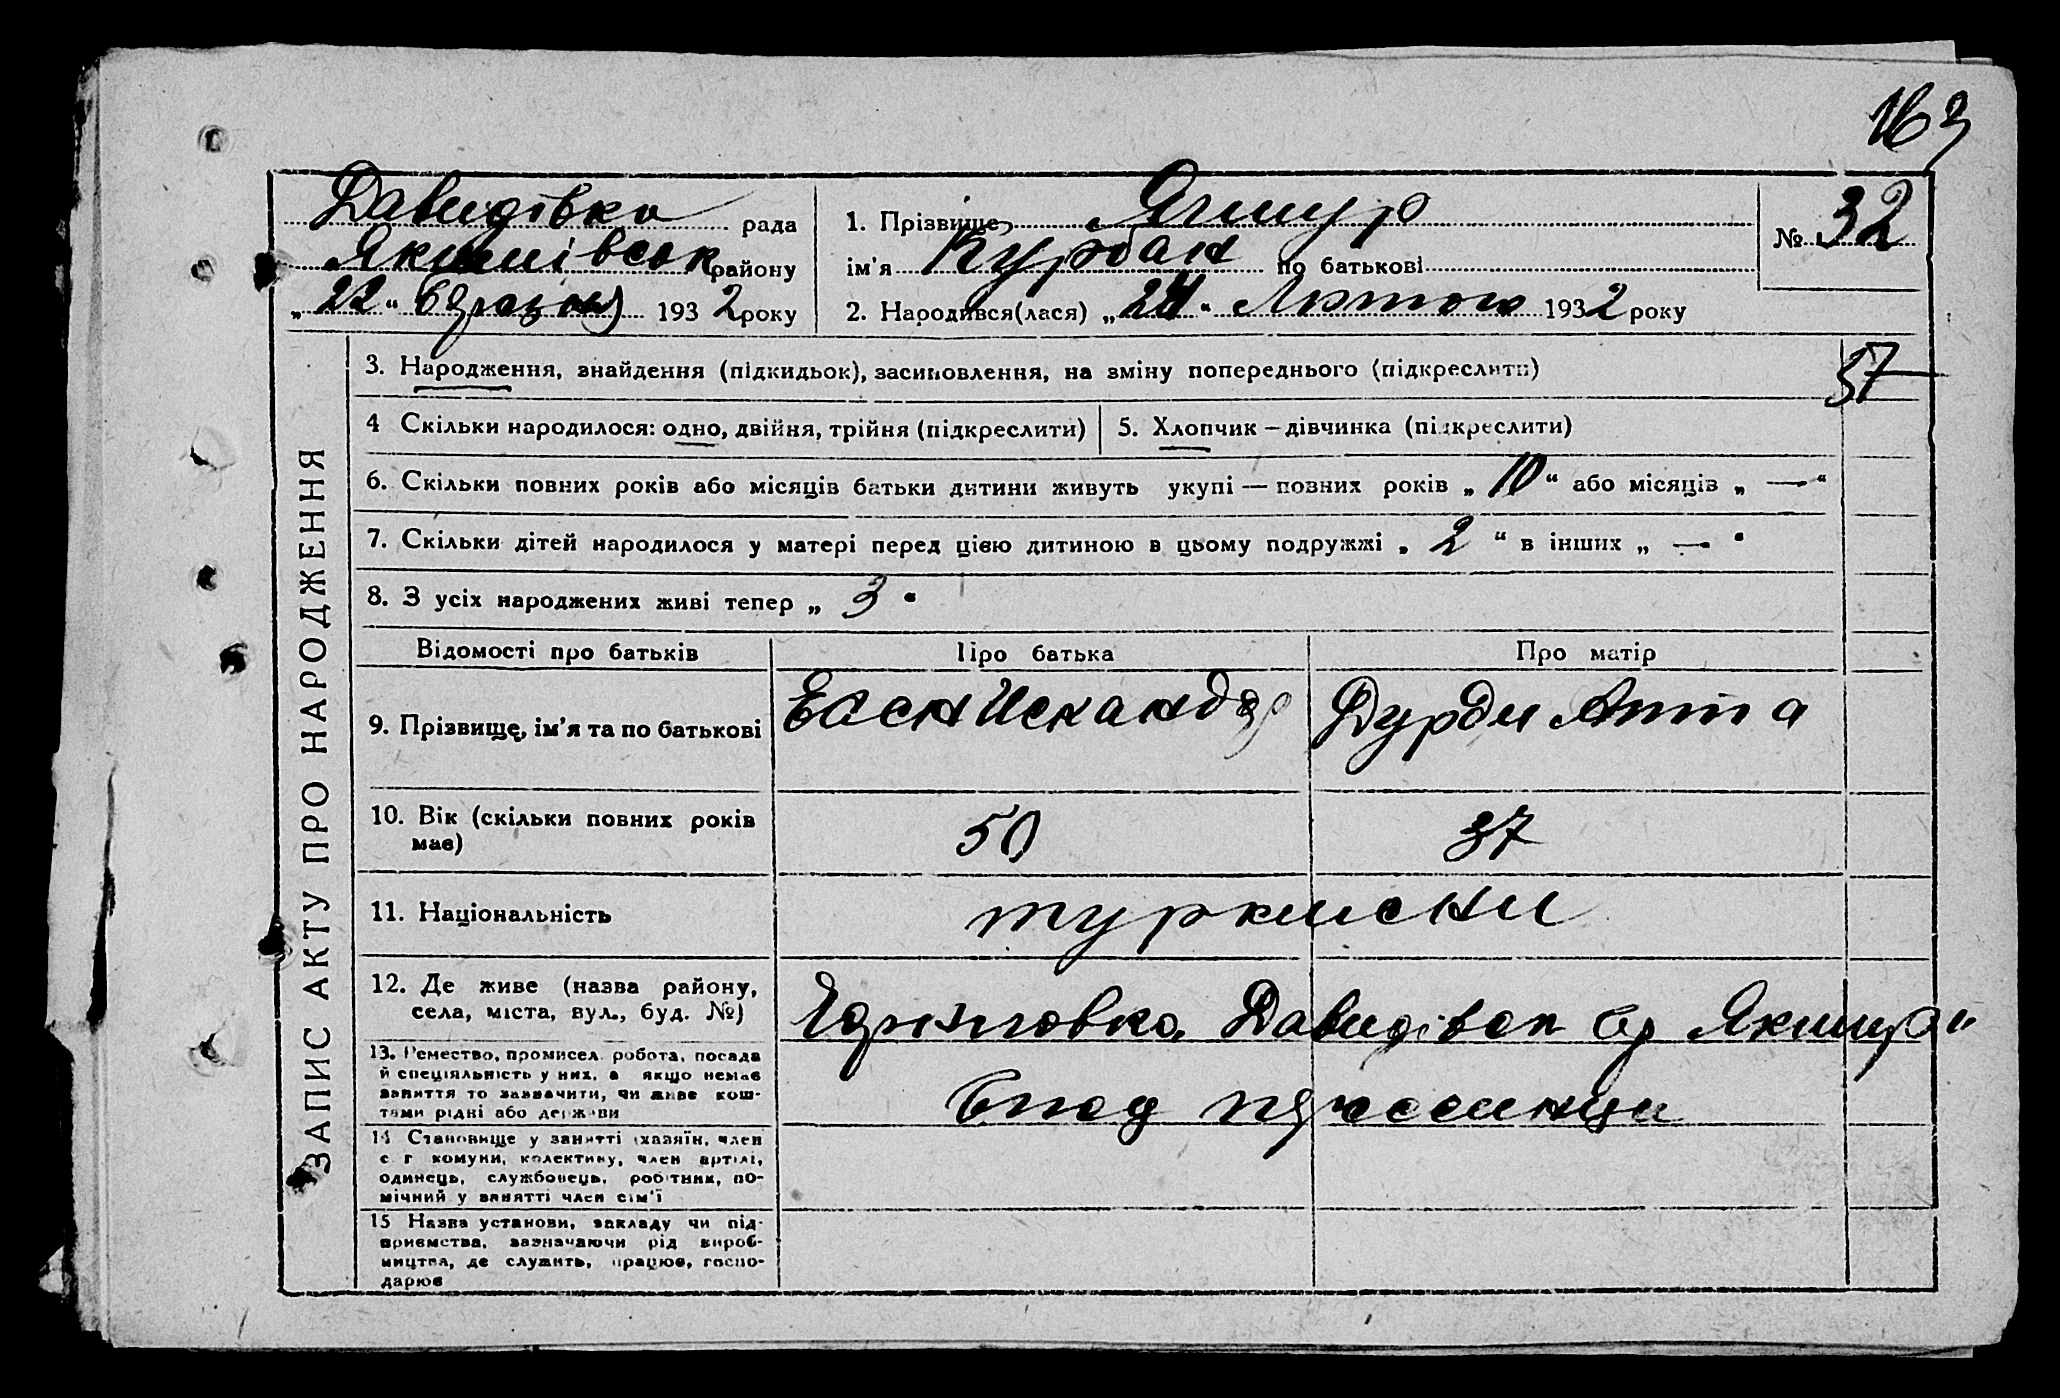 163
Давидівка рада
Якимівськ району
„ 22 “ березня 1932 року
1. Прізвище
ім'я Курбан по батькові
2. Народився(лася) „ 24 “ Лютого 1932 року
№ 32
ЗАПИС АКТУ ПРО НАРОДЖЕННЯ
3. Народження, знайдення (підкидьок), засиновлення, на зміну попереднього (підкреслити)
37
4 Скільки народилося: одно, двійня, трійня (підкреслити)
5. Хлопчик – дівчинка (підкреслити)
6. Скільки повних років або місяців батьки дитини живуть укупі — повних років „ 10 “ або місяців „ — “
7. Скільки дітей народилося у матері перед цією дитиною в цьому подружжі „ 2 “ в інших „ — “
8. З усіх народжених живі тепер „ 3 “
Відомості про батьків Про батька Про матір
9. Прізвище, ім'я та по батькові Есен Искандер Дурди
10. Вік (скільки повних років має) 50 37
11. Національність туркмени
12. Де живе (назва району,
села, міста, вул., буд. №) Давидівск Якимр
13. Ремество, промисел, робота, посада
й спеціяльність у них, а якщо немає
заняття то зазначити, чи живе кош-
тами рідні або держави
14 Становище у занятті (хазяїн, член
с. г комуни, колективу, член артілі,
одинець, службовець, робітник, по-
мічний у занятті член сім'ї
15 Назва установи, закладу чи під-
приємства, зазначаючи рід вироб-
ництва, де служить, працює, госпо-
дарює